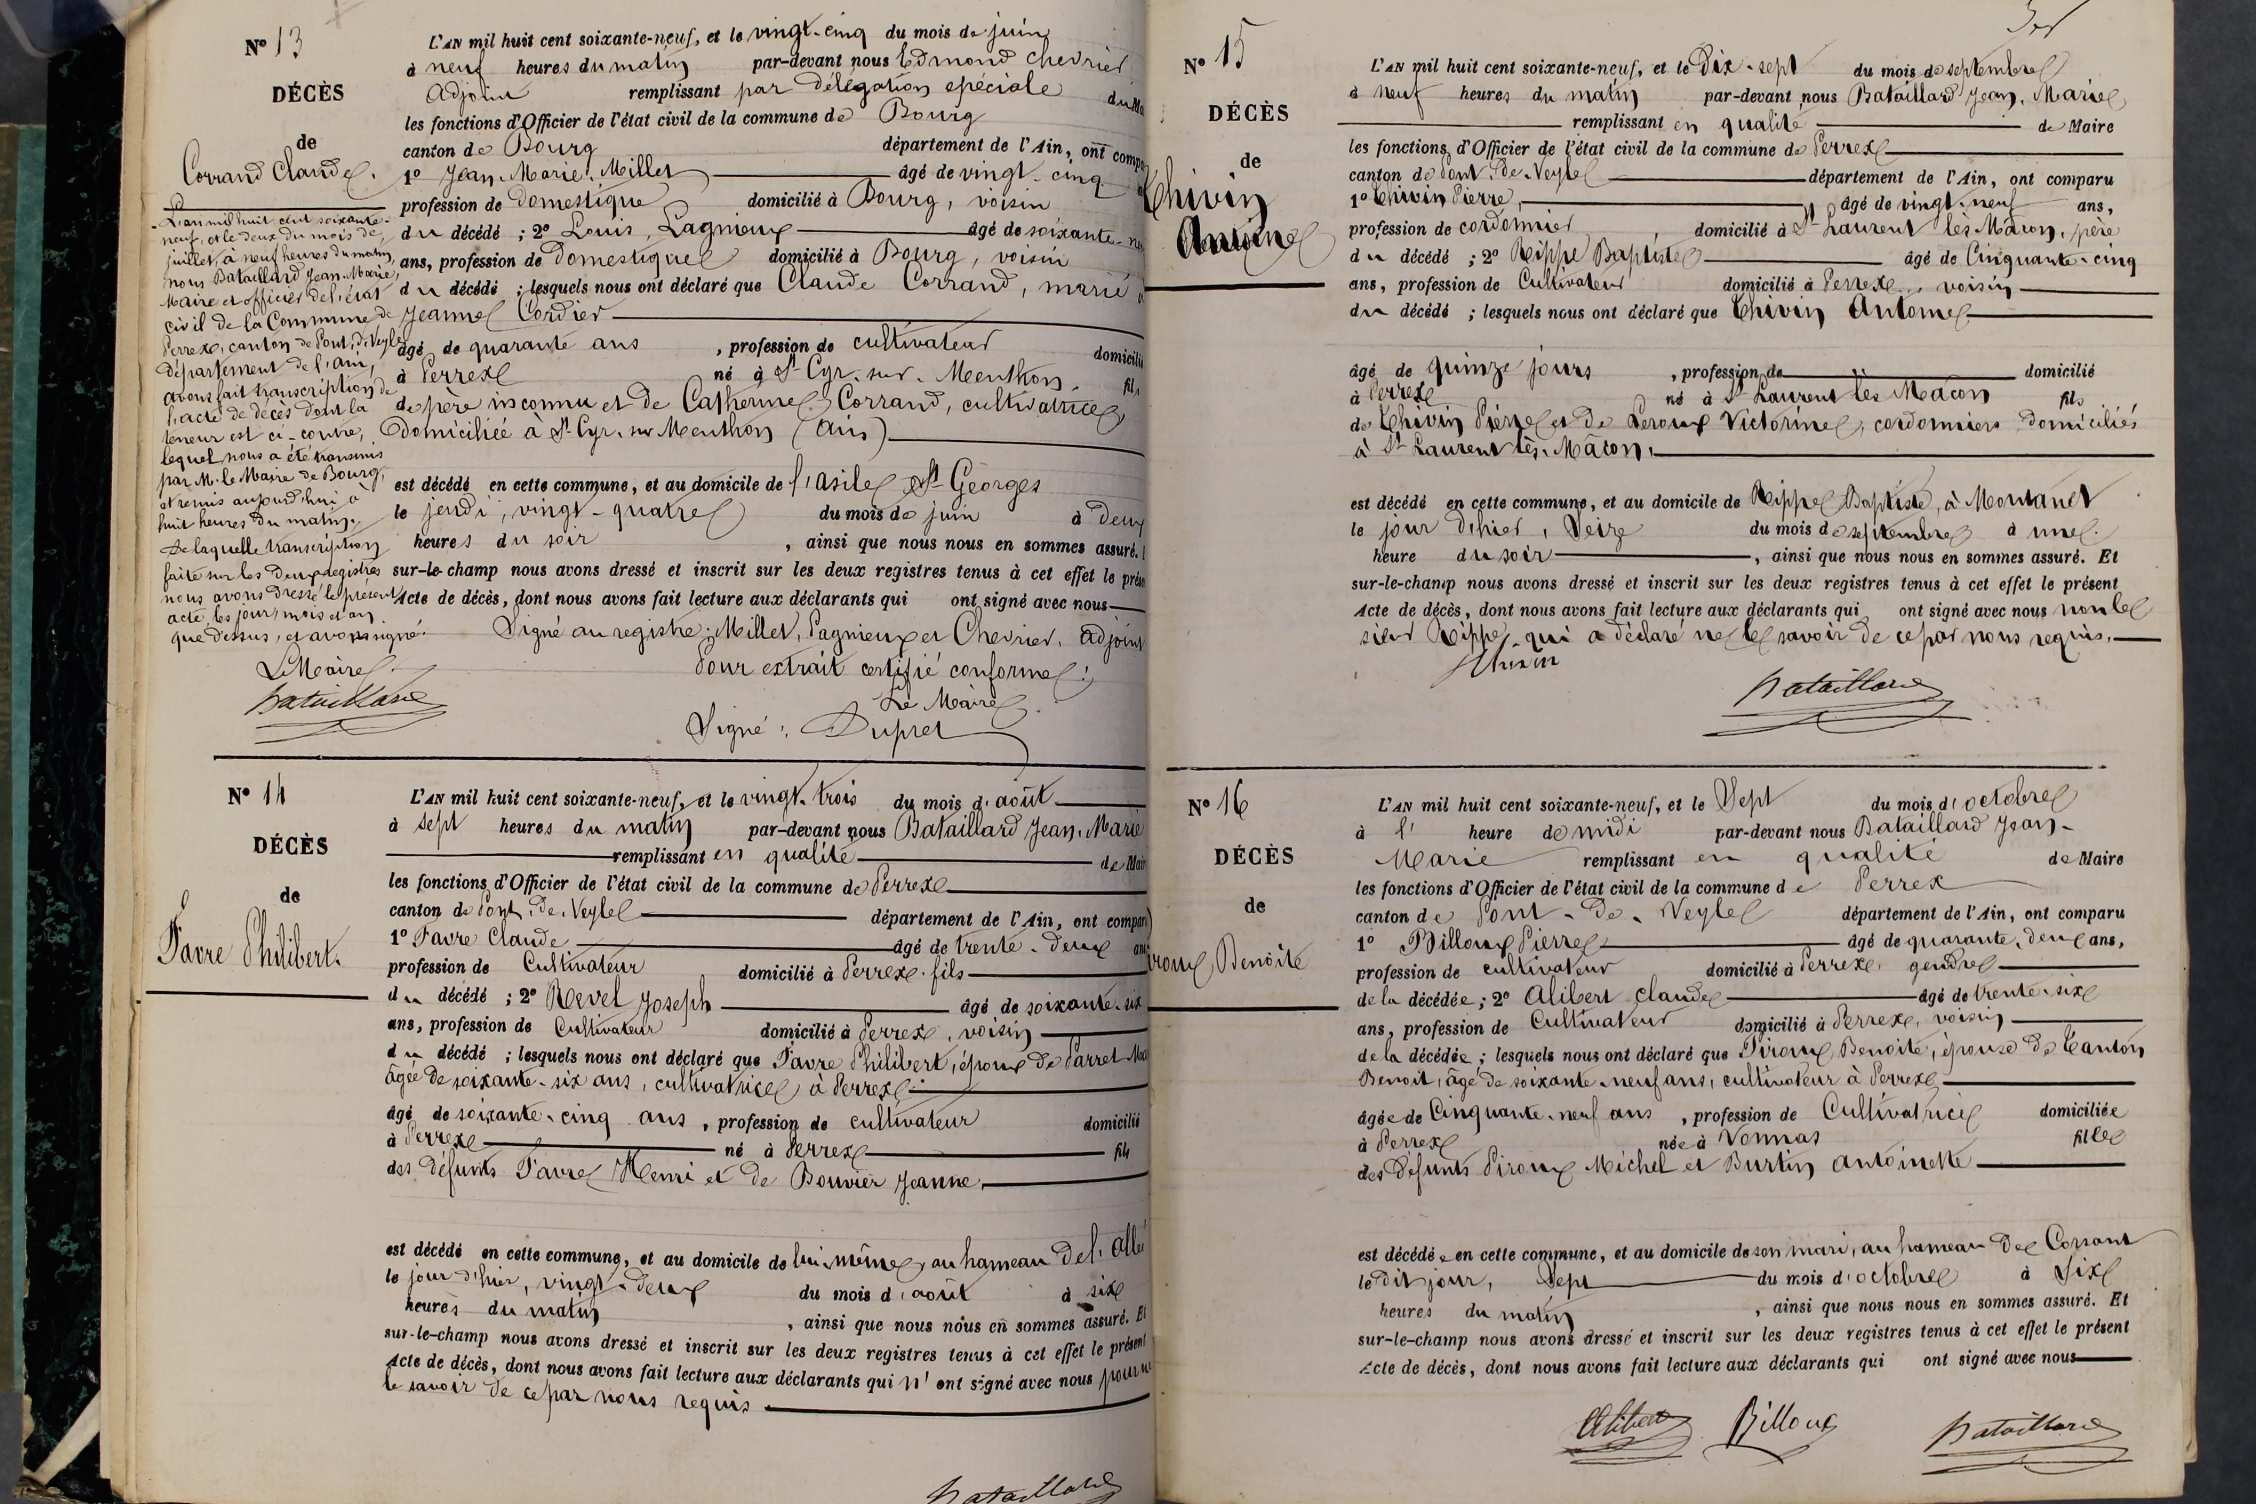 N° 13
DÉCÈS
de
Corrand Claude.
L'an mil huit cent soixante-
neuf, et le deux du mois de
juillet, à neuf heures du matin,
nous Bataillard Jean-Marie,
Maire et officier de l'état
civil de la Commune de
Perrex, canton de Pont-de-Veyle
département de l'Ain,
avons fait transcription de
l'acte de décès dont la
teneur est ci-contre,
lequel nous a été transmis
par M. le Maire de Bourg,
et remis aujourd'hui à
huit heures du matin.
De laquelle transcription
faite sur les deux registres
nous avons dressé le présent
acte, les jour, mois et an
que dessus, et avons signé.
Le Maire
Bataillard
L'AN mil huit cent soixante-neuf, et le vingt-cinq du mois de juin
à neuf heures du matin par-devant nous Edmond Chevrier
Adjoint remplissant par délégation spéciale du Ma
les fonctions d'Officier de l'état civil de la commune de Bourg
canton de Bourg département de l'Ain, ont compa
1° Jean-Marie Millet âgé de vingt-cinq
profession de domestique domicilié à Bourg, voisin
du décédé ; 2° Louis Lagnieux âgé de soixante-
ans, profession de domestique domicilié à Bourg, voisin
du décédé ; lesquels nous ont déclaré que Claude Corrand, marié à
Jeanne Cordier
âgé de quarante ans, profession de cultivateur domicilié
à Perrex né à St Cyr-sur-Menthon, fils
de père inconnu et de Catherine Corrand, cultivatrice,
domiciliée à St Cyr-sur Menthon (Ain)
est décédé en cette commune, et au domicile de l'asile St Georges
le jeudi, vingt-quatre du mois de juin à deux
heures du soir, ainsi que nous nous en sommes assuré.
sur-le-champ nous avons dressé et inscrit sur les deux registres tenus à cet effet le prése
Acte de décès, dont nous avons fait lecture aux déclarants qui ont signé avec nous
Signé au registre: Millet, Lagnieux et Chevrier, adjoint
Pour extrait certifié conforme:
Le Maire
Signé: Dupret
N° 14
DÉCÈS
de
Favre Philibert.
L'AN mil huit cent soixante-neuf, et le vingt-trois du mois d'août
à sept heures du matin par-devant nous Bataillard Jean-Marie
remplissant en qualité de Mair
les fonctions d'Officier de l'état civil de la commune de Perrex
canton de Pont-de-Veyle département de l'Ain, ont comparu
1° Favre Claude âgé de trente-deux ans
profession de Cultivateur domicilié à Perrex, fils
du décédé ; 2° Revel Joseph âgé de soixante-six
ans, profession de Cultivateur domicilié à Perrex, voisin
du décédé ; lesquels nous ont déclaré que Favre Philibert, époux de Parret
âgée de soixante-six ans, cultivatrice à Perrex
âgé de soixante-cinq ans, profession de cultivateur domicilié
à Perrex né à Perrex fils
des défunts Favre Henri et de Bouvier Jeanne,
est décédé en cette commune, et au domicile de lui-même, au hameau de l'
le jour d'hier, vingt-deux du mois d'août à six
heures du matin, ainsi que nous nous en sommes assuré. Et
sur-le-champ nous avons dressé et inscrit sur les deux registres tenus à cet effet le présent
Acte de décès, dont nous avons fait lecture aux déclarants qui n'ont signé avec nous pour ne
le savoir de ce par nous requis
Bataillard
N° 15
DÉCÈS
de
Chivin
Antoine
L'AN mil huit cent soixante-neuf, et le Dix-sept du mois de septembre
à neuf heures du matin par-devant nous Bataillard Jean-Marie
remplissant en qualité de Maire
les fonctions d'Officier de l'état civil de la commune de Perrex
canton de Pont-de-Veyle département de l'Ain, ont comparu
1° Chivin Pierre, âgé de vingt-neuf ans,
profession de cordonnier, domicilié à St Laurent lès Mâcon, père
du décédé ; 2° Rippe Baptiste âgé de Cinquante-cinq
ans, profession de Cultivateur domicilié à Perrex, voisin
du décédé ; lesquels nous ont déclaré que Chivin Antoine
âgé de quinze jours, profession de domicilié
à Perrex né à St Laurent lès Mâcon fils
de Chivin Pierre et de Leroux Victorine, cordonniers domiciliés
à St Laurent lès-Mâcon.
est décédé en cette commune, et au domicile de Rippe Baptiste, à Montanet
le jour d'hier, Seize du mois de septembre à une
heure du soir, ainsi que nous nous en sommes assuré. Et
sur-le-champ nous avons dressé et inscrit sur les deux registres tenus à cet effet le présent
Acte de décès, dont nous avons fait lecture aux déclarants qui ont signé avec nous non le
sieur Rippe, qui a déclaré ne le savoir de ce par nous requis.
Chivin
Bataillard
N° 16
DÉCÈS
de
Piroux Benoîte
L'AN mil huit cent soixante-neuf, et le Sept du mois d'octobre
à l' heure de midi par-devant nous Bataillard Jean-
Marie remplissant en qualité de Maire
les fonctions d'Officier de l'état civil de la commune de Perrex
canton de Pont-de-Veyle département de l'Ain, ont comparu
1° Billoux Pierre âgé de quarante-deux ans,
profession de cultivateur domicilié à Perrex, gendre
de la décédée ; 2° Alibert Claude âgé de trente-six
ans, profession de Cultivateur domicilié à Perrex, voisin
de la décédée ; lesquels nous ont déclaré que Piroux Benoîte, épouse de Canton
Benoit, âgé de soixante-neuf ans, cultivateur à Perrex
âgée de Cinquante-neuf ans, profession de Cultivatrice domiciliée
à Perrex née à Vonnas fille
des défunts Piroux Michel et Burtin Antoinette
est décédée en cette commune, et au domicile de son mari, au hameau de Corsant
le dit jour, Sept du mois d'octobre à Six
heures du matin, ainsi que nous nous en sommes assuré. Et
sur-le-champ nous avons dressé et inscrit sur les deux registres tenus à cet effet le présent
Acte de décès, dont nous avons fait lecture aux déclarants qui ont signé avec nous
Alibert Billoux Bataillard